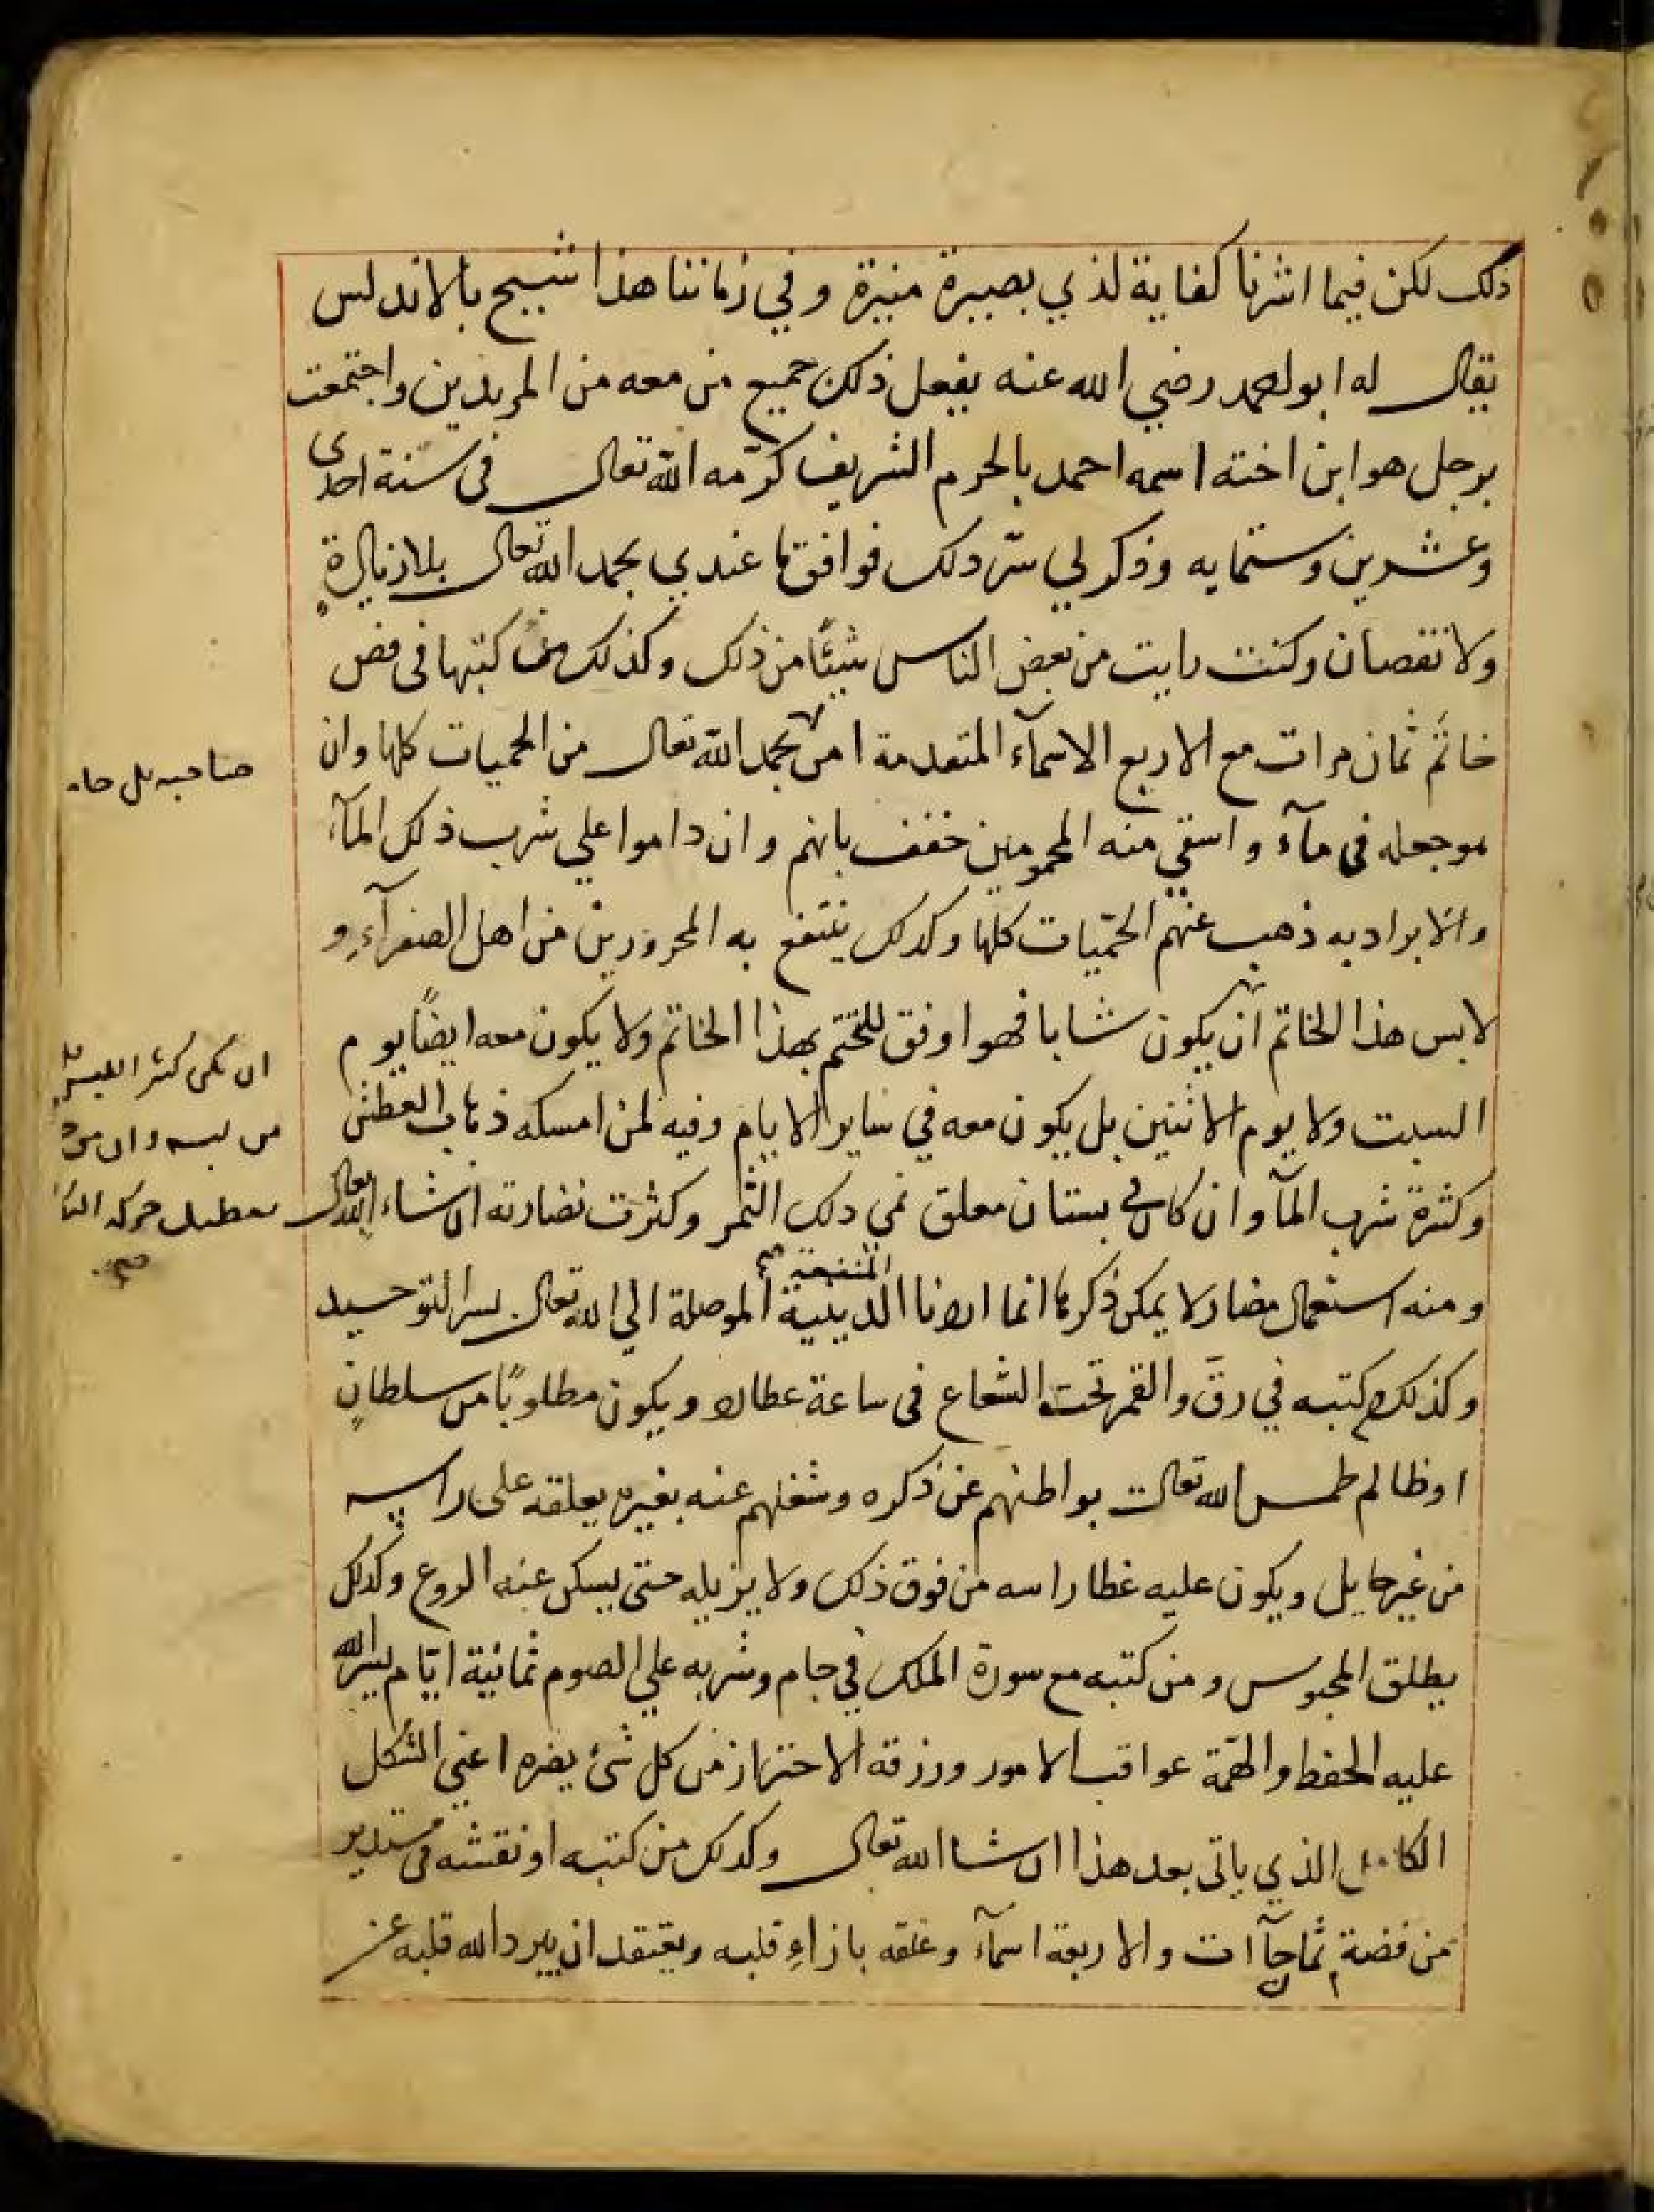 ذلك لكن فيما اشرنا كفاية لذي بصيرة منيرة وفي زماننا هذا شيخ بالاندلس
يقال له ابو احمد رضي الله عنه يفعل ذلك جميع من معه من المريدين واجتمعت
برجل هو ابن اخته اسمه احمد بالحرم الشريف كرّمه الله تعالى فى سنة احدى
وعشرين وستمايه وذكر لي سرّ دلك فوافق ما عندي بحمد الله تعالى بلا زيادة
ولا نقصان وكنت رايت من بعض الناس شيئًا من ذلك وكذلك من كتبها فى فص
خاتم ثمان مرات مع الاربع الاسمآء المتقدمة امن بحمد الله تعالى من الحميات كلها وان
صاحبه بل
هو جعله فى مآء واسقي منه المحمومين خفف بانهم وان داموا علي شرب ذلك المآء
والابراد به ذهب عنهم الحمّيات كلها وكدلك ينتفع به المحرورين من اهل الصفرآءِ و
لابس هذا الخاتم ان يكون شابا فهو اوفق للتختم بهذا الخاتم ولا يكون معه ايضًا يوم
السبت ولا يوم الاثنين بل يكون معه في ساير الايام وفيه لمن امسكه ذهاب العطش
وكثرة شرب المآ وان كان فى بستان معلق نمي دلك الثمر وكثرت نضارته ان شاء الله تعالى
من لبسه وان
ومنه استعمال مضار لا يمكن ذكرها انما اردنا الدينية الموصلة الي الله تعالى بسر التوحيد
وكذلك كتبه في رقّ والقمر تحت الشعاع فى ساعة عطارد ويكون مطلوبًا من سلطانٍ
او ظالم طمس الله تعالى بواطنهم عن ذكره وشغلهم عنه بغيره يعلقه على راسه
من غير حايل ويكون عليه غطا راسه من فوق ذلك ولا يزيله حتى يسكن عنه الروع وكدلك
يطلق المحبوس ومن كتبه مع سورة الملك في جام وشربه علي الصوم ثمانية ايّام يسر الله
عليه الحفظ والهمّة عواقب الامور ورزقه الاحتراز من كل شئ يضره اعني الشكل
الكامل الذي ياتى بعد هذا ان شا الله تعالى وكدلك من كتبه او نقشه فى مستدير
من فضة ثمان حآات والاربعة اسمآء وعلقه بازاءِ قلبه ويعتقد ان يبرد الله قلبه عن